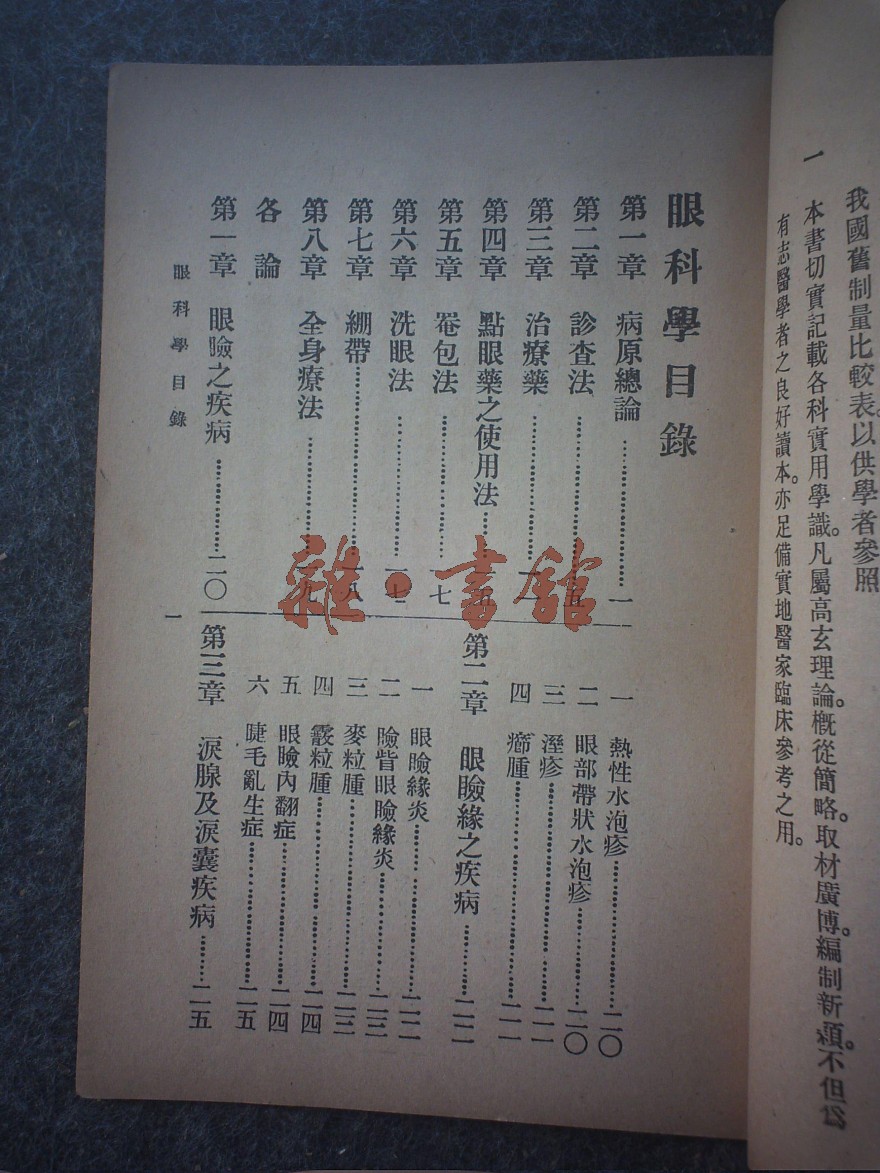 我國舊制量比較表。以供學者參照
一 本書切實記載各科實用學識。凡屬高玄理論。概從簡略。取材廣博。編制新穎。不但爲
有志醫學者之良好讀本。亦足備實地醫家臨床參考之用。
眼科學目錄
第一章 病原總論 一
第二章 診查法 五
第三章 治療藥
第四章 點眼藥之使用法
第五章 罨包法 一七
第六章 洗眼法 一七
第七章 繃帶 一八
第八章 全身療法 一九
各論
第一章 眼瞼之疾病 二〇
一 熱性水泡疹 二〇
二 眼部帶狀水泡疹 二〇
三 溼疹 二一
四 癤腫 二一
第二章 眼瞼緣之疾病 二二
一 眼瞼緣炎 二二
二 瞼眥眼瞼緣炎 二三
三 麥粒腫 二三
四 霰粒腫 二四
五 眼瞼內翻症 二四
六 睫毛亂生症 二五
第三章 淚腺及淚囊疾病 二五
眼科學目錄 一
雜·書館